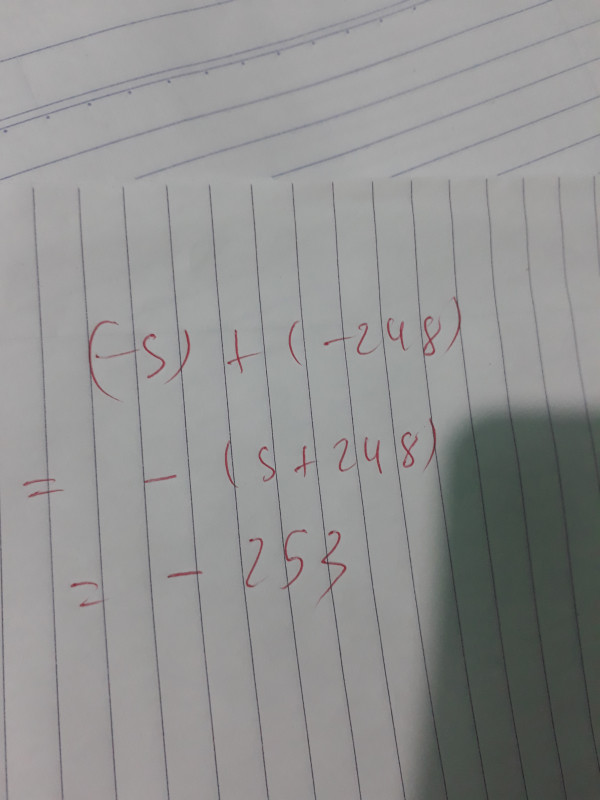 (-5) + (-248)
= - (5+248)
= - 253